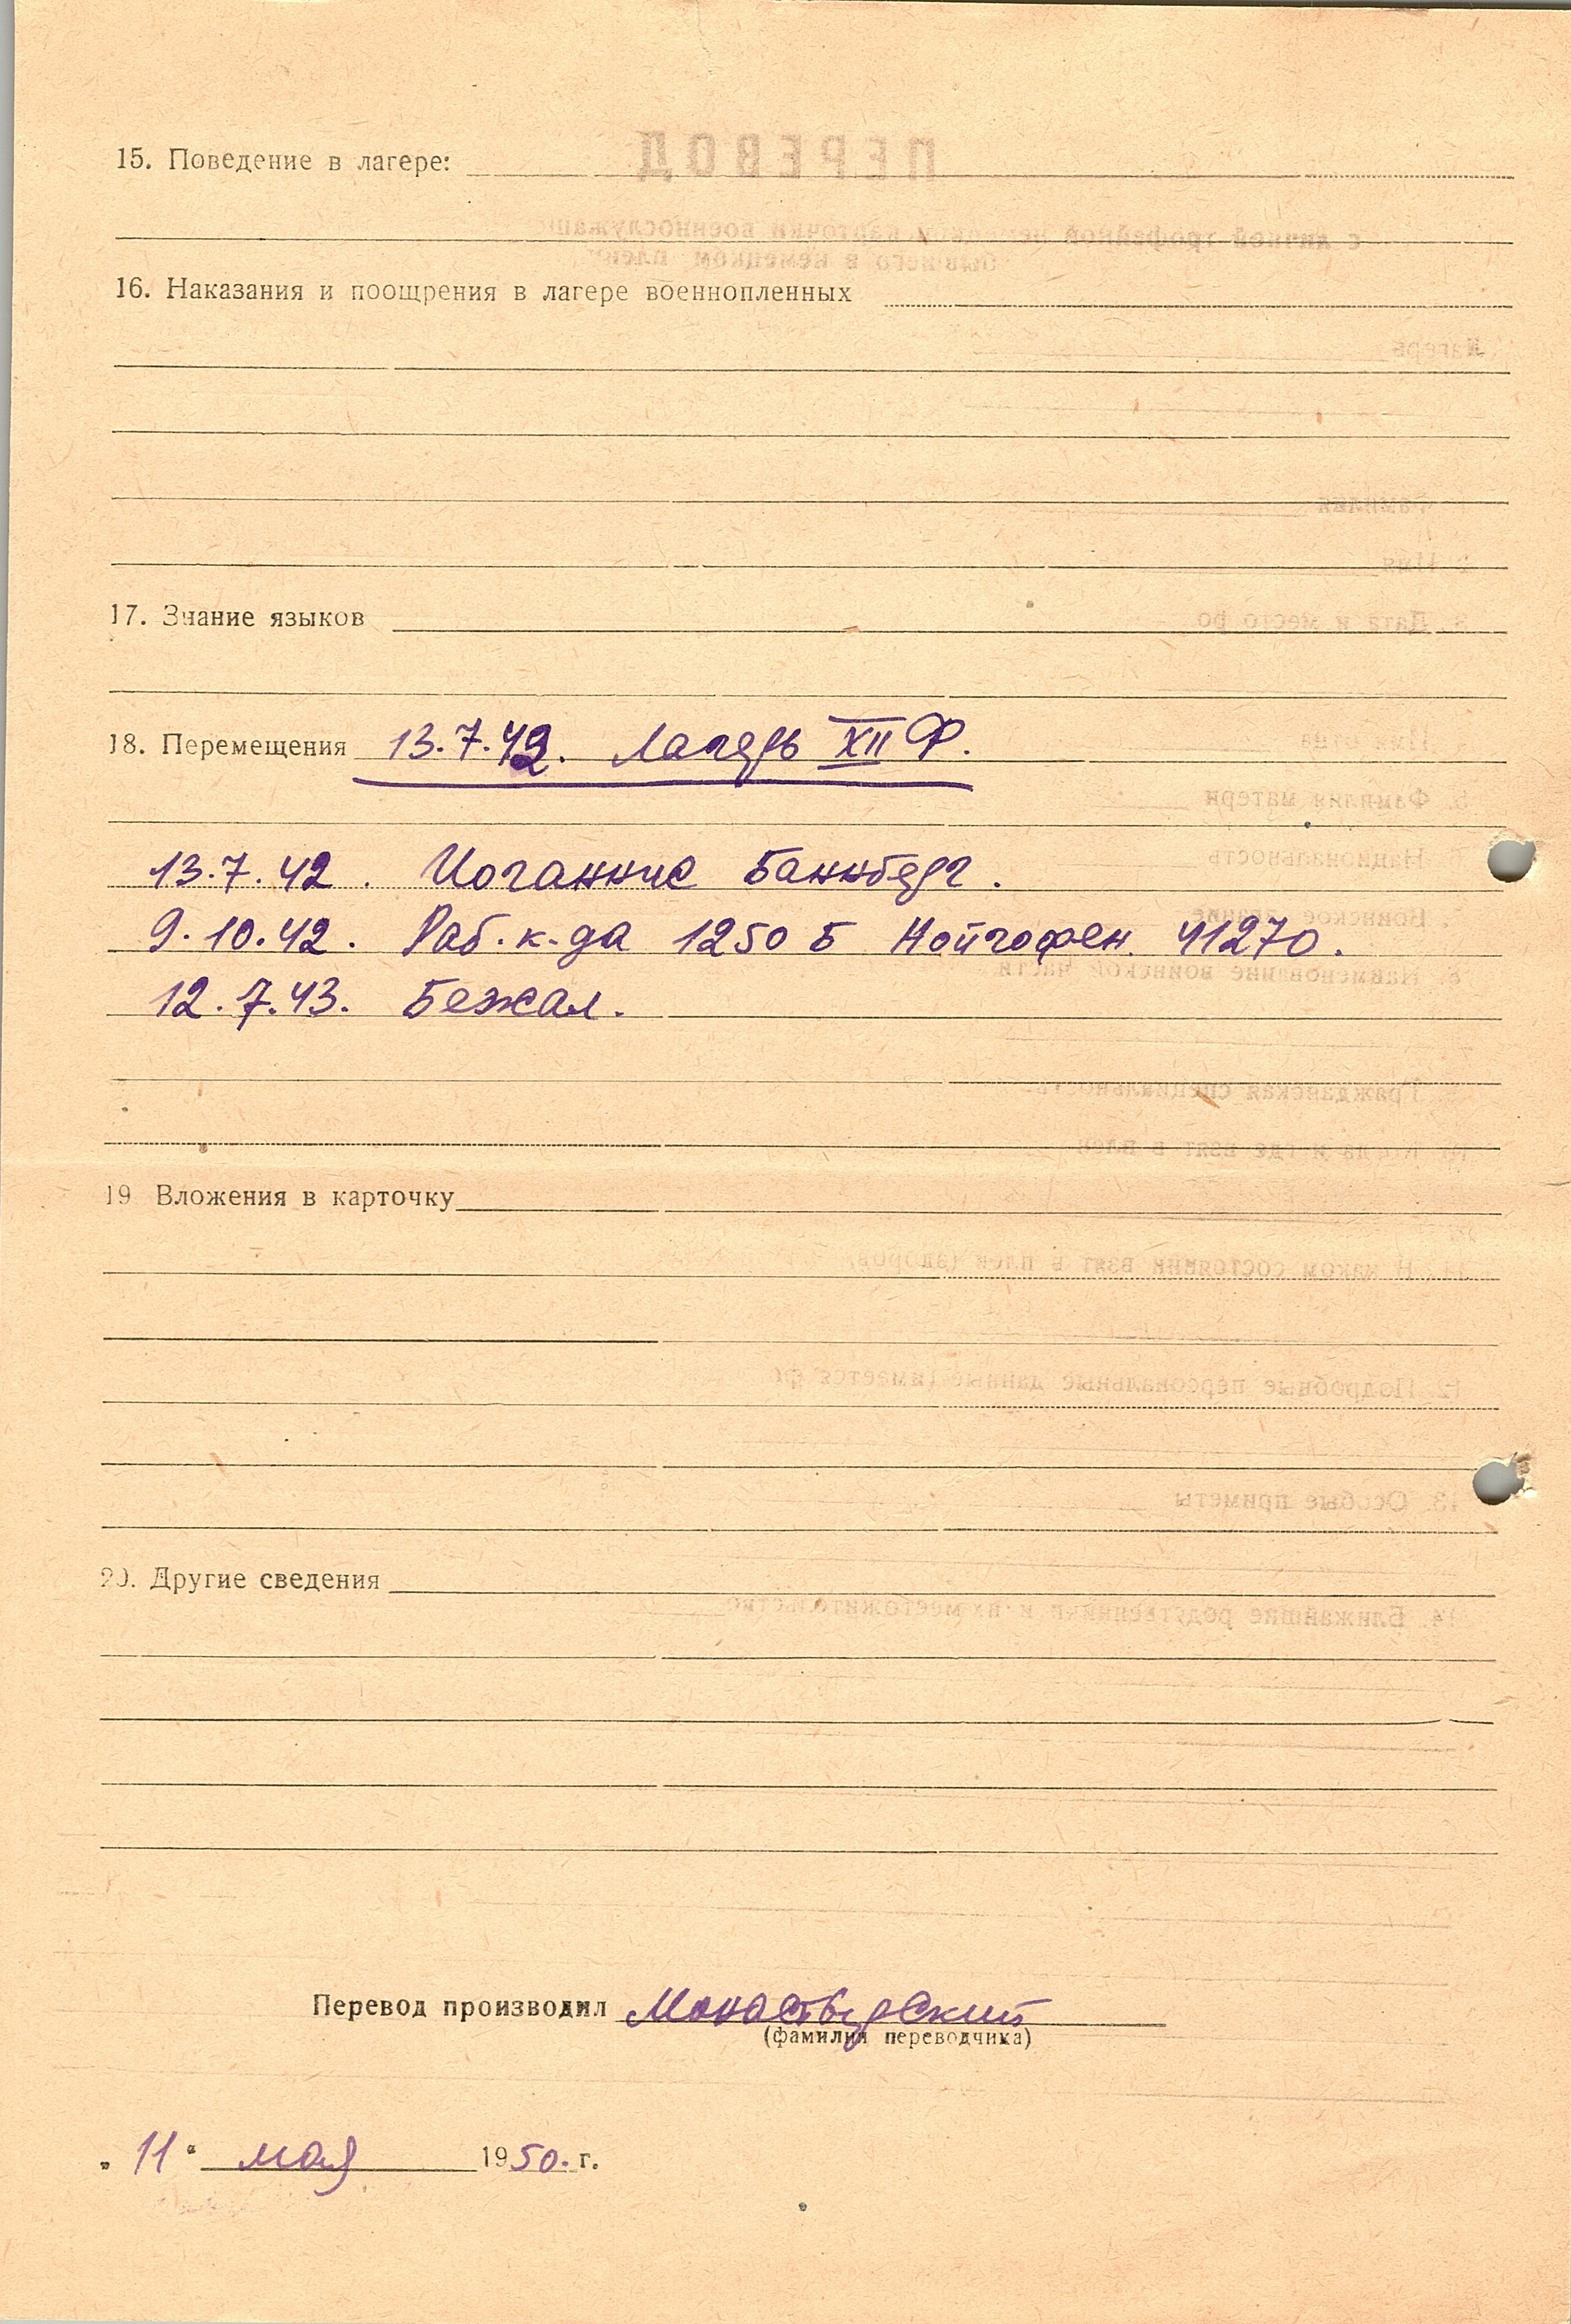 15. Поведение в лагере:
16. Наказания и поощрения в лагере военнопленных
17. Знание языков
18. Перемещения 13.7.42. Лагерь XII Ф.
13.7.42. Иоганнис Баннберг.
9.10.42. Раб. к-да 1250 Б Нойгофен. 41270.
12.7.43. Бежал.
19 Вложения в карточку
20. Другие сведения
Перевод производил Монастырский
(фамилия переводчика)
„11“ мая 1950. г.